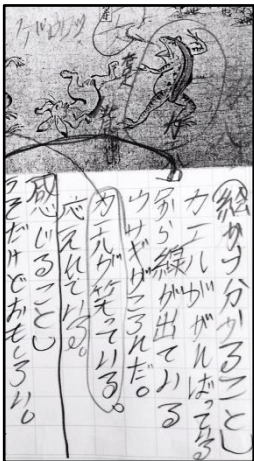 絵から分かること
カエルががんばってる
口から線が出ている
ウサギがころんだ。
カエルが笑っている。
応えんている。
感じること
うそだけどおもしろい。